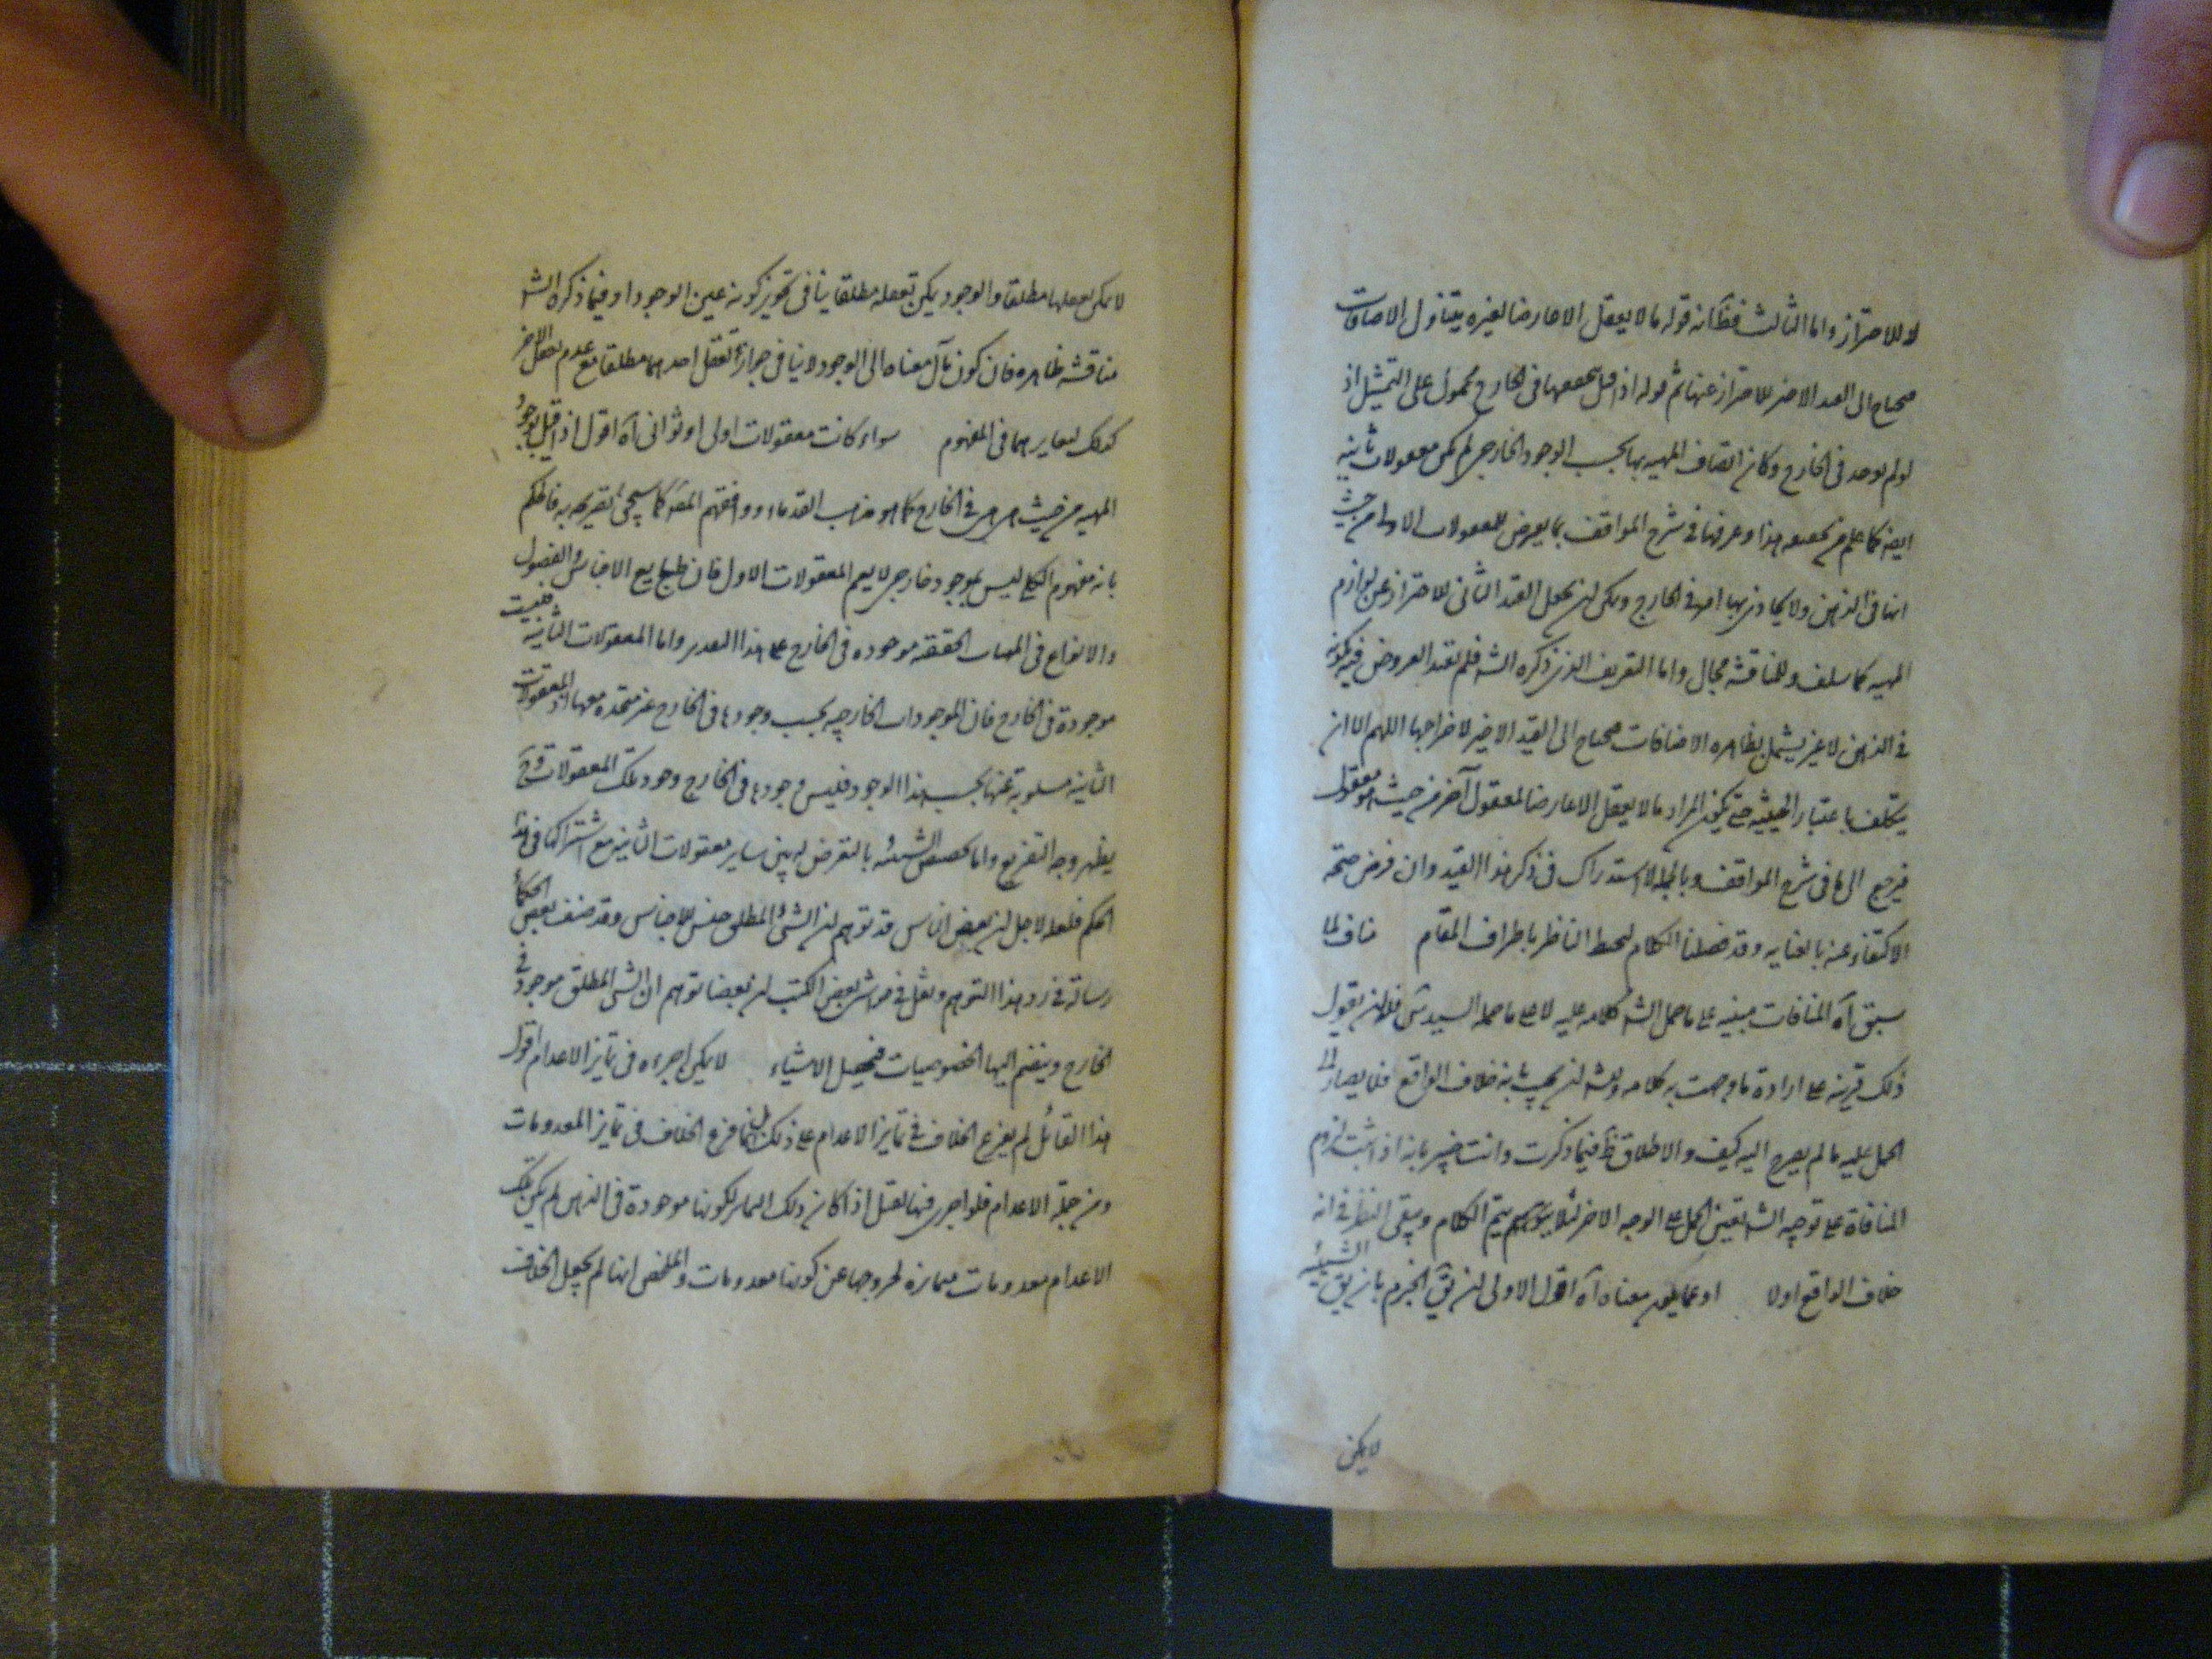 لا للاحتراز واما الثالث فظ آنه قوله ما لا يعقل الا عارضا لغيره يتناول الاضافات
محتاج الى القيد الاخر للاحتراز عنها ثم قوله اذ قيل تحققها فى الخارج محمول على التمثيل اذ
لو لم يوجد فى الخارج وكان اتصاف المهيه بها بحسب الوجود الخارجى لم يكن معقولات ثانيه
ايضا كما علم من تحقيقه هذا وعرفها فى شرح المواقف بما يعرض للمعقولات الاولى من حيث
انها فى الذهن ولا يحاذى بها امر فى الخارج ويمكن ان يجعل القيد الثانى للاحتراز عن لوازم
المهيه كما سلف وللمناقشه مجال واما التعريف الذى ذكره الش فلم يقيد العروض فيه بكونه
فى الذهن لا غير يشمل بظاهره الاضافات محتاج الى القيد الاخير لاخراجها اللهم الا ان
يتكلف باعتبار الحيثيه حتى يكون المراد ما لا يعقل الا عارضا لمعقول آخر من حيث هو معقول
فيرجع الى ما فى شرح المواقف وبالجمله لا استدراك فى ذكر هذا القيد وان فرض صحه
الاكتفاء عنه بالعنايه وقد فصلنا الكلام ليحيط الناظر باطراف المقام مناف لما
سبق آه المنافات مبنيه على ما حمل الش كلامه عليه لا على ما حمله السيد س فله ان يقول
ذلك قرينه على ارادة ما وجهت به كلامه وللش ان يجيب بانه خلاف الواقع فلا يصار الى
الحمل عليه ما لم يصرح اليه كيف والاطلاق ظ فيما ذكرت وانت خبير بانه اذا ثبت لزوم
المنافاة على توجيه الش تعين الحمل على الوجه الاخر لئلا يتوهم يتم الكلام ويبقى النظر فى انه
خلاف الواقع اولا او عما يلزمه معناه آه اقول الاولى ان يق الجزم بان يق الشيئيه
لا يمكن
لا يمكن تعقلها مطلقا والوجود يمكن تعقله مطلقا ينافى تجويز كونه عين الوجود او فيما ذكره الش
مناقشه ظاهره فان كون مآل معناه الى الوجود لا ينافى جواز تعقل احدهما مطلقا مع عدم تعقل الاخر
كذلك لتغايرهما فى المفهوم سواء كانت معقولات اولى او ثوانى آه اقول اذا قيل بوجود
المهيه من حيث هى هى فى الخارج كما هو مذهب القدماء ووافقهم المص كما سيجئ تصريحه به فالحكم
بانه مفهوم الكلى ليس بموجود خارجى لا يعم المعقولات الاول فان طبايع الاجناس والفصول
والانواع فى المهيات الحقيقه موجوده فى الخارج على هذا التقدير واما المعقولات الثانيه فليست
موجودة فى الخارج فان الموجودات الخارجيه بحسب وجودها فى الخارج غير متحده معها اذ المعقولات
الثانيه مسلوبة عنها بحسب هذا الوجود فليس وجودها فى الخارج وجود تلك المعقولات وح
يظهر وجه التفريع واما تخصيص الشيئيه بالتعرض له بين ساير معقولات الثانيه مع اشتراكها فى هذا
الحكم فلعله لاجل ان بعض الناس قد توهم ان الشئ المطلق جنس للاجناس وقد صنف بعض الحكماء
رسالة فى رد هذا التوهم ونقل فى حواشى بعض الكتب ان بعضا توهم ان الشئ المطلق موجود فى
الخارج وينضم اليها الخصوصيات فيحصل الاشياء لا يمكن اجراءه فى تمايز الاعدام اقول
هذا القائل لم يفرع الخلاف فى تمايز الاعدام على ذلك انما فرع الخلاف فى تمايز المعدومات
ومن جملة الاعدام فلو اجرى فيها لقيل اذا كان ذلك التمايز لكونها موجودة فى الذهن لم يكن تلك
الاعدام معدومات متمايزه لخروجها عن كونها معدومات والملخص انا لم يجعل الخلاف